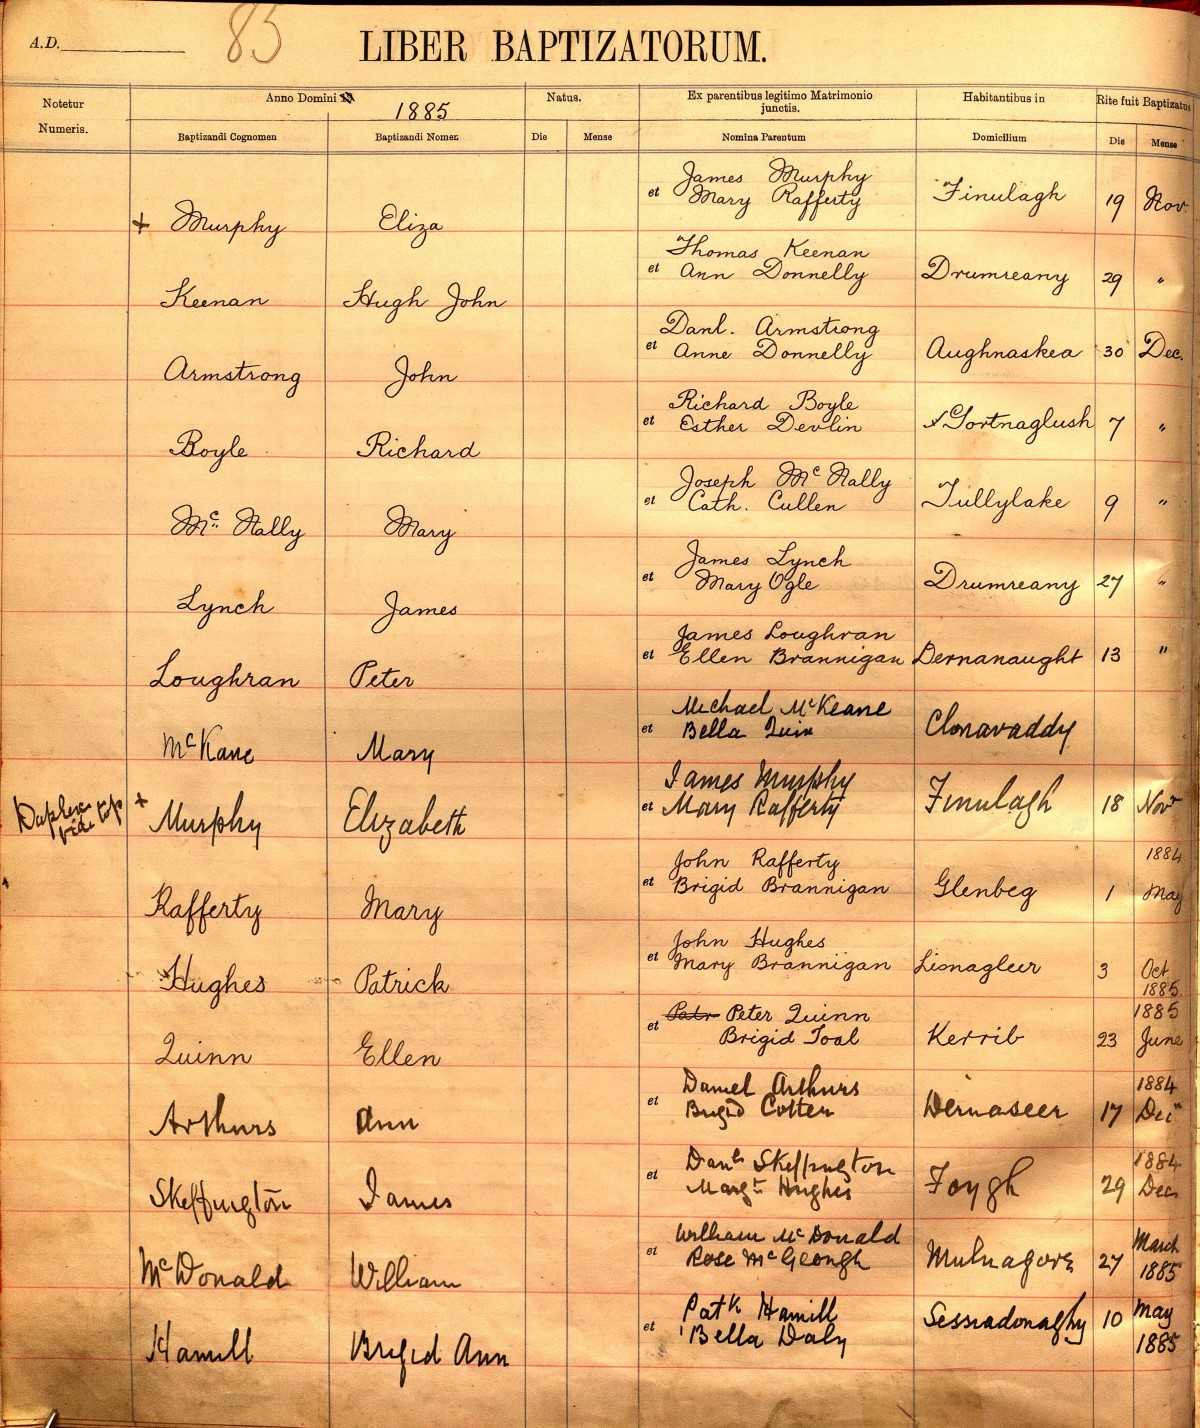 A.D.
85
LIBER BAPTIZATORUM.
Notetur Numeris.
Anno Domini 18
1885
Natus.
Ex parentibus legitimo Matrimonio junctis.
Habitantibus in
Rite fuit Baptizatus
Baptizandi Cognomen
Baptizandi Nomen
Die
Mense
Nomina Parentum
Domicilium
Die
Mense
James Murphy
+ Murphy Eliza et Mary Rafferty Finulagh 19 Nov.
Thomas Keenan
Keenan Hugh John et Ann Donnelly Drumreany 29 "
Danl. Armstrong
Armstrong John et Anne Donnelly Aughnaskea 30 Dec.
Richard Boyle
Boyle Richard et Esther Devlin Gortnaglush 7 "
Joseph McNally
McNally Mary et Cath. Cullen Tullylake 9 "
James Lynch
Lynch James et Mary Ogle Drumreany 27 "
James Loughran
Loughran Peter et Ellen Brannigan Dernanaught 13 "
Michael McKeane
McKane Mary et Bella Quin Clonavaddy
James Murphy
vide top + Murphy Elizabeth et Mary Rafferty Finulagh 18 Novr
John Rafferty 1884
Rafferty Mary et Brigid Brannigan Glenbeg 1 May
John Hughes
Hughes Patrick et Mary Brannigan Lisnagleer 3 Oct
1885.
Patr Peter Quinn 1885
Quinn Ellen et Brigid Toal Kerrib 23 June
Daniel Arthurs 1884
Arthurs Ann et Brigid Cotter Dernaseer 17 Decr
Danl Skeffington 1884
Skeffington James et Margt Hughes Foygh 29 Dec
William McDonald March
McDonald William et Rose McGeough Mulnagore 27 1885
Patk Hamill May
Hamill Brigid Ann et Bella Daly Sessiadonaghy 10 1885